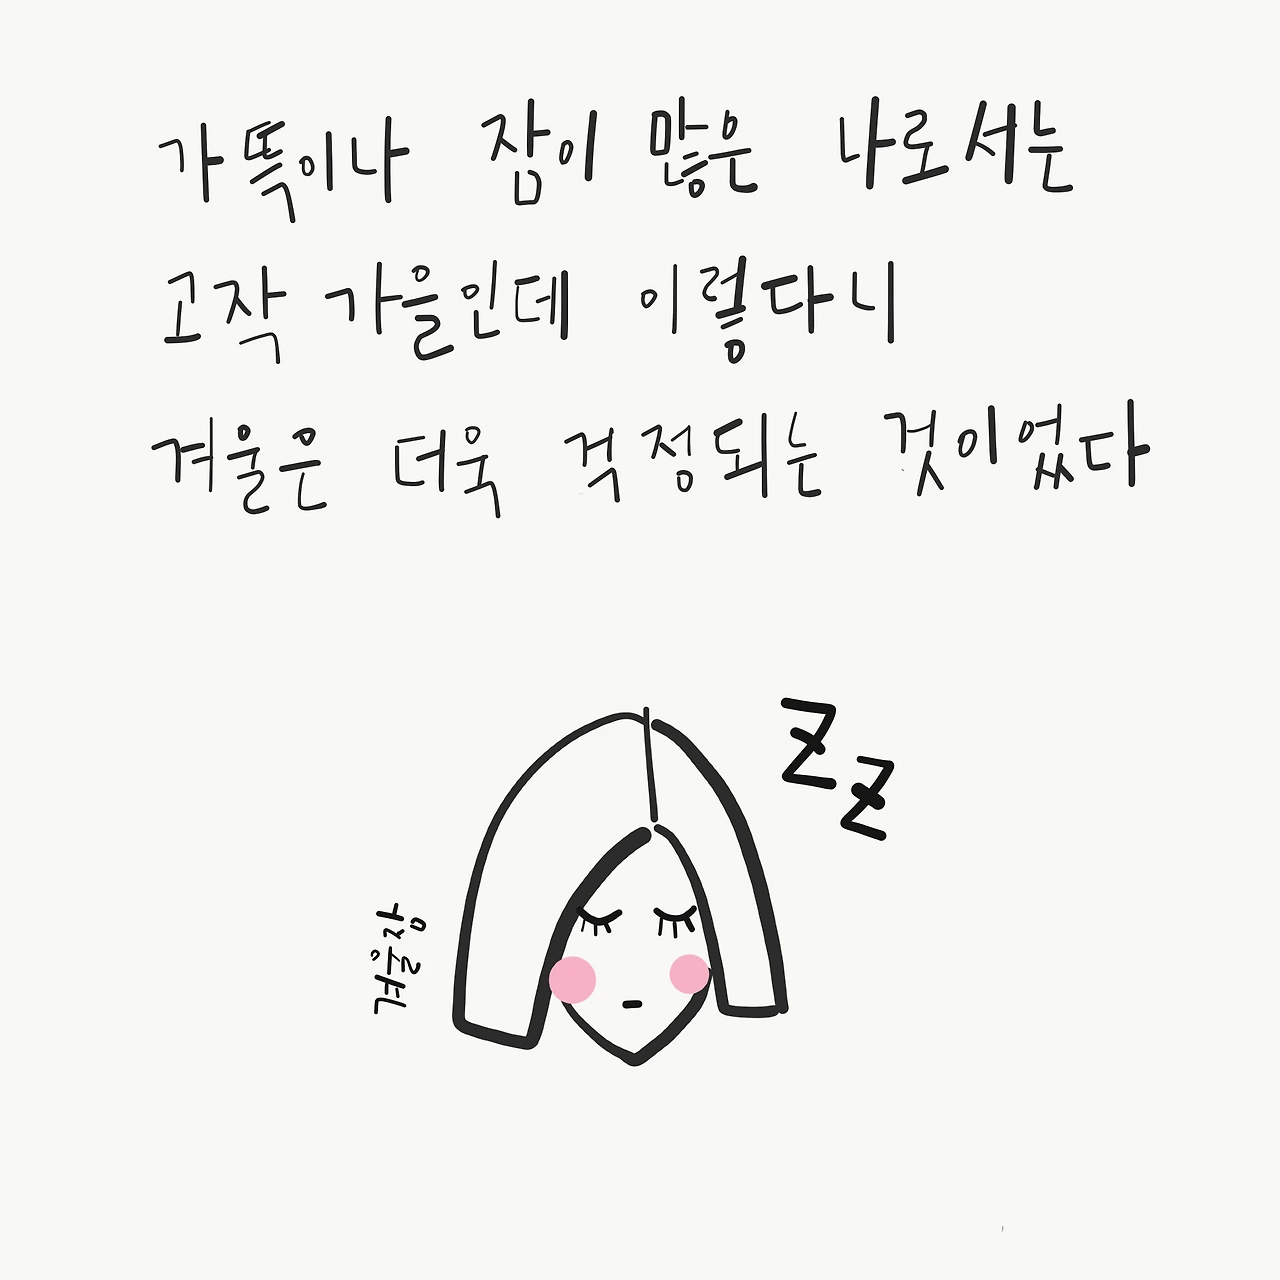 가뜩이나 잠이 많은 나로서는
고작 가을인데 이렇다니
겨울은 더욱 걱정되는 것이었다
ZZ
겨울잠